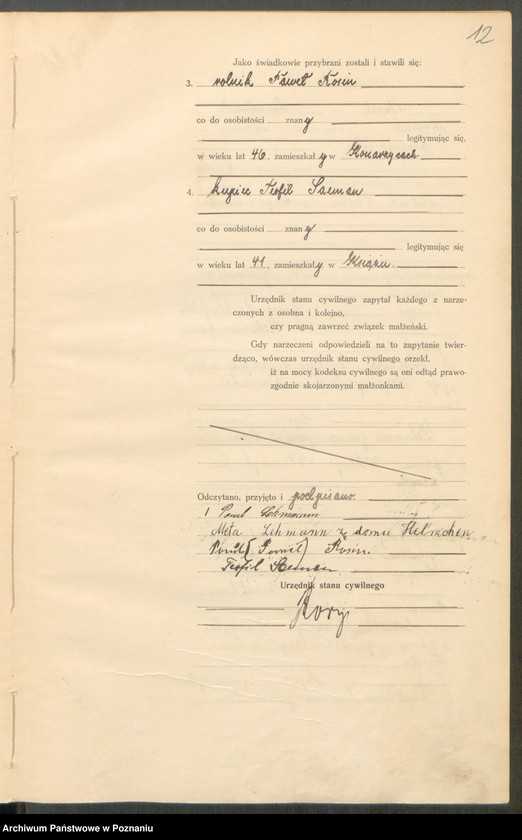 12
Jako świadkowie przybrani zostali i stawili się:
3. rolnik Paweł Kosin
co do osobistości znany
legitymując się,
w wieku lat 46, zamieszkały w Konarzycach
4. kupiec Teofil Szeman
co do osobistości znany
legitymując się
w wieku lat 41, zamieszkały w Książu
Urzędnik stanu cywilnego zapytał każdego z narze-
czonych z osobna i kolejno,
czy pragną zawrzeć związek małżeński.
Gdy narzeczeni odpowiedzieli na to zapytanie twier-
dząco, wówczas urzędnik stanu cywilnego orzekł,
iż na mocy kodeksu cywilnego są oni odtąd prawo-
zgodnie skojarzonymi małżonkami.
Odczytano, przyjęto i podpisano.
Lehmann
Meta Lehmann z domu Helmchen
(Paweł) Kosin.
Teofil
Urzędnik stanu cywilnego
Archiwum Państwowe w Poznaniu